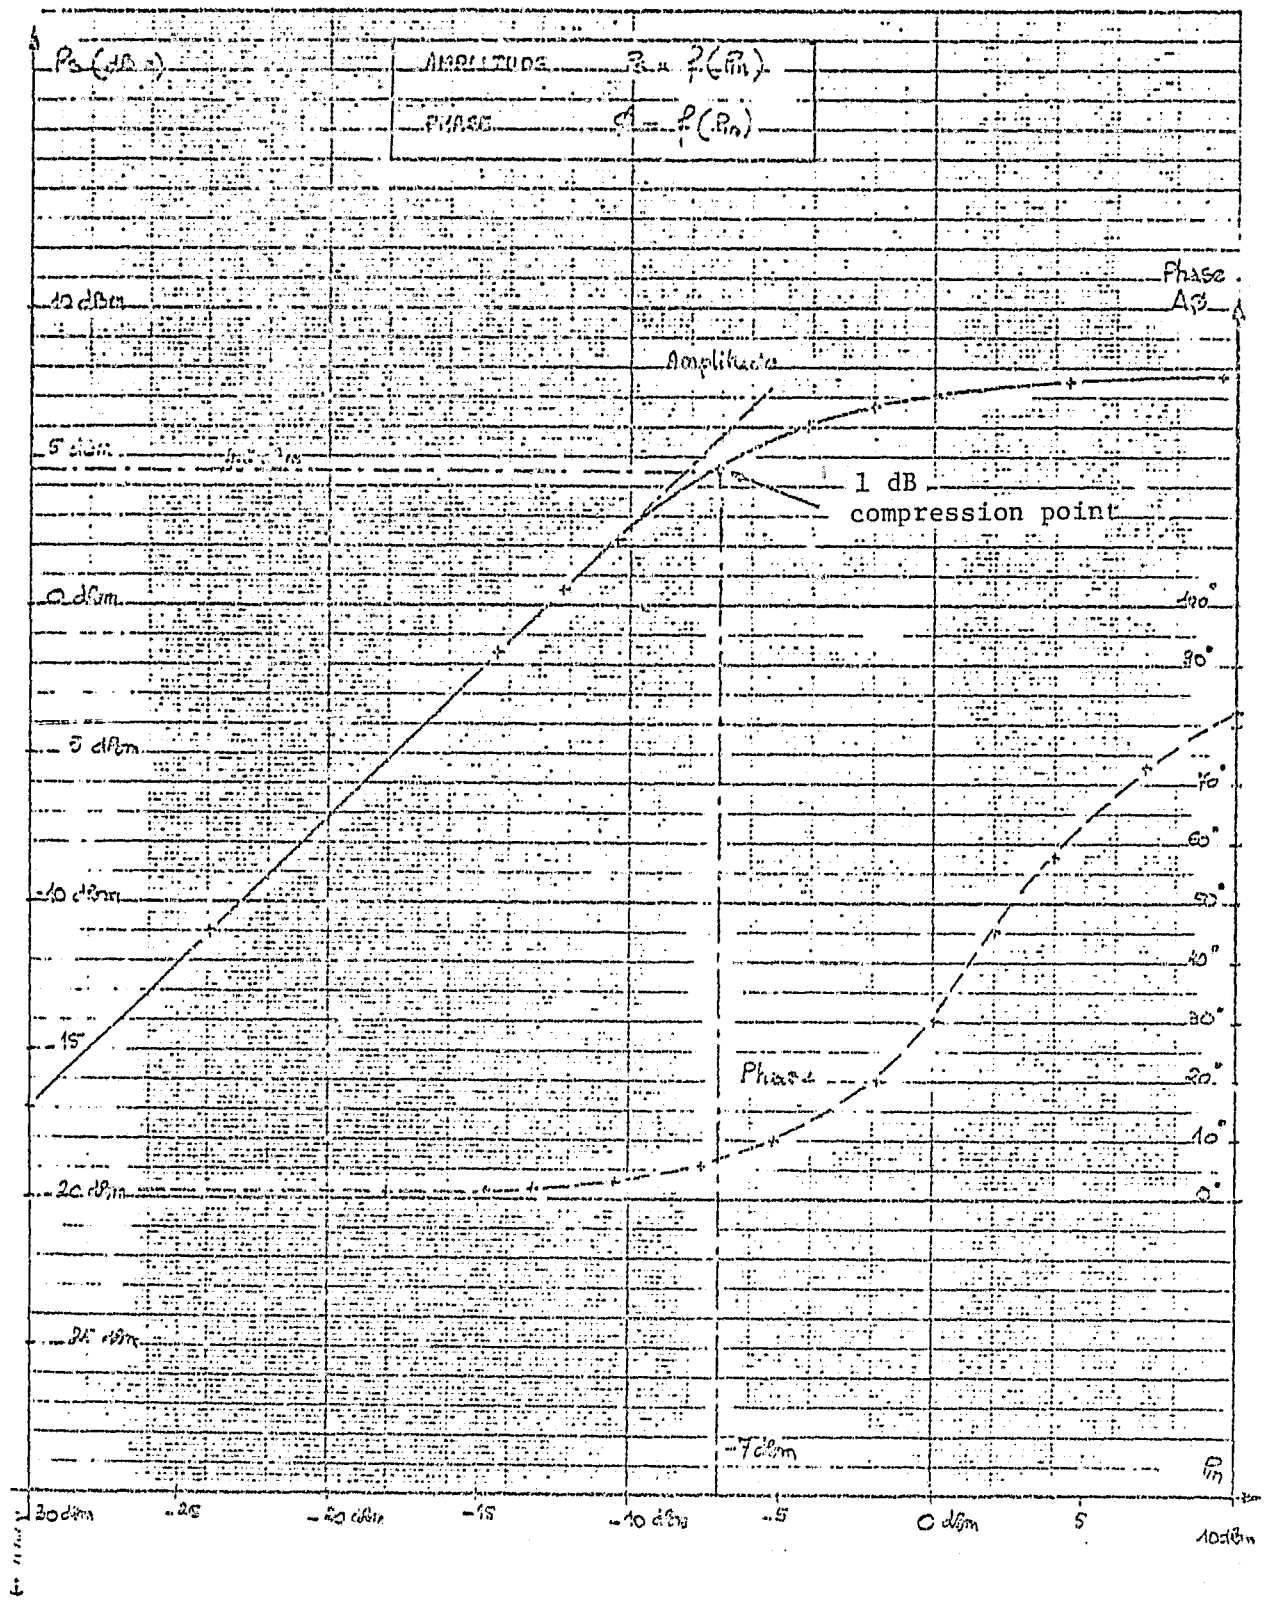 Ps (dBm)
AMPLITUDE Ps = f(Pin)
PHASE Ø = f(Pin)
Phase
Δø
10 dBm
Amplitude
5 dBm
1 dB
compression point
0 dBm
100°
90°
-5 dBm
70°
60°
-10 dBm
50°
40°
30°
-15
Phase
20°
10°
-20 dBm
0°
-25 dBm
-7 dBm
Pin
-30 dBm -25 -20 dBm -15 -10 dBm -5 0 dBm 5 10 dBm